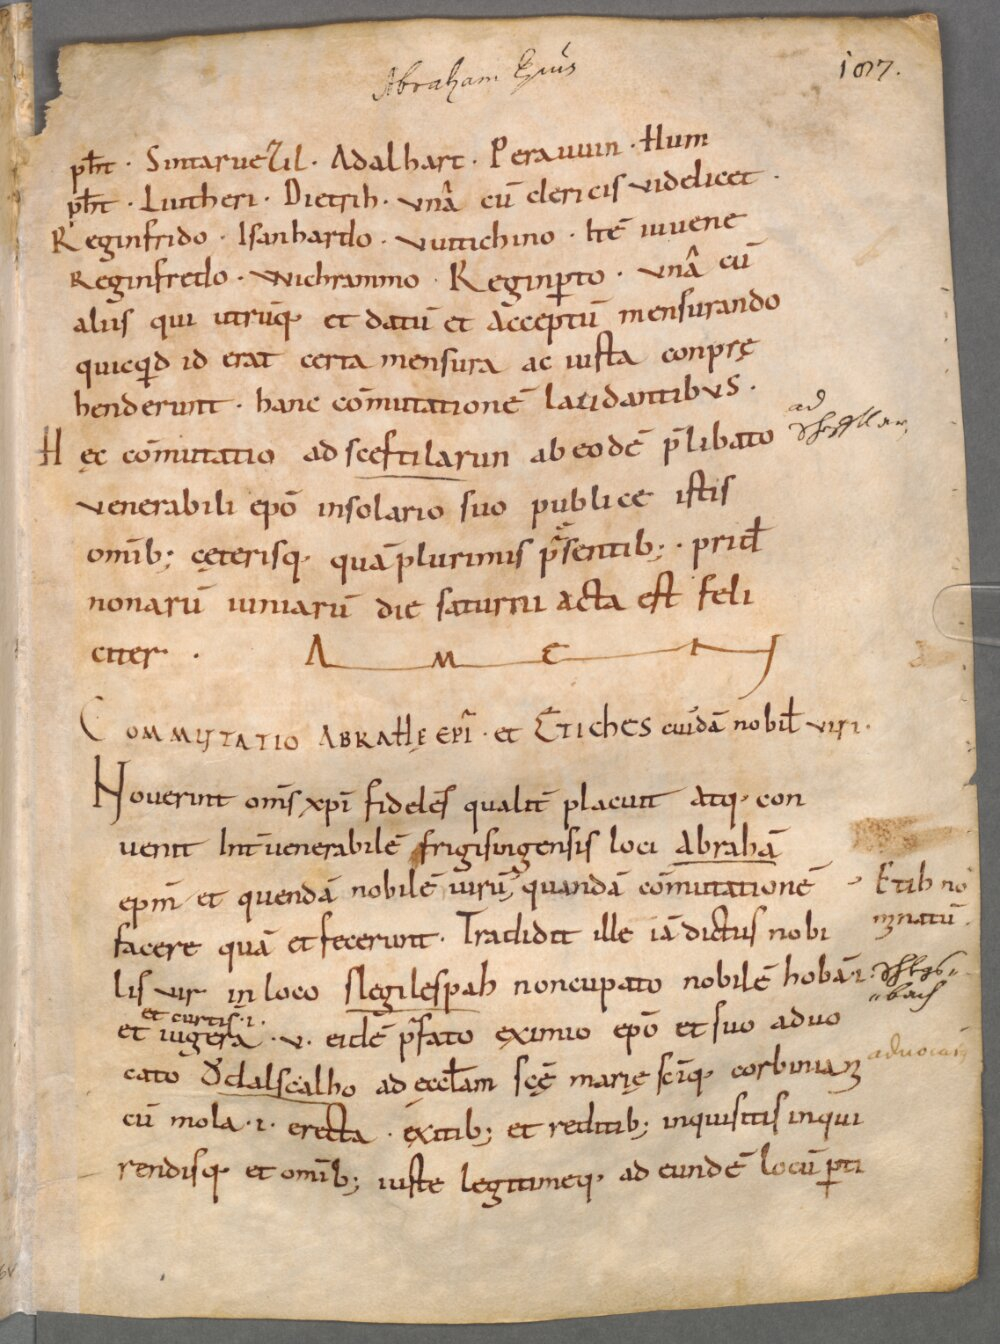 Abraham Epus
187.
pbt · Sintaruezil · Adalhart · Perauuin · Hum
pbt · Liutheri · Dietrih · vnā cū clericis videlicet ·
Reginfrido · Isanhardo · vuitichino · Itē iuuene
Reginfredo · wichrammo · Reginpto · vnā cū
aliis qui utrūq; et datū et acceptū mensurando
quicqid id erat certa mensura ac iusta conprę
henderunt · hanc cōmutationē laudantibus ·
Hęc cōmutatio ad sceftilarun ab eodē p̄libato
ad
venerabili epō in solario suo publice istis
omib; cęterisq; quāplurimis p̄sentib; · prid
nonarū iuniarū die saturni acta est feli
citer · A M E N
COMMUTATIO ABRAHĘ EPI · et ETICHES cuidā nobil viri ·
Nouerint oms xpi fideles qualit placuit atq; con
uenit Int uenerabilē frigisingensis loci Abrahā
epm et quendā nobilē uirū quandā cōmutationē
Etih no
minatū
facere quā et fecerunt · Tradidit ille iā dictus nobi
lis vir in loco slegilespah noncupato nobilē hobā · i ·
et curtis · i ·
et iugera · v · eidē p̄fato eximio epō et suo aduo
aduocato
cato Odalscalho ad ecclam scę marię scīq; corbiniani
cū mola · i · erecta · exitib; et reditib; inquisitis inqui
rendisq; et omib; iuste legitimeq; ad eundē locū pti